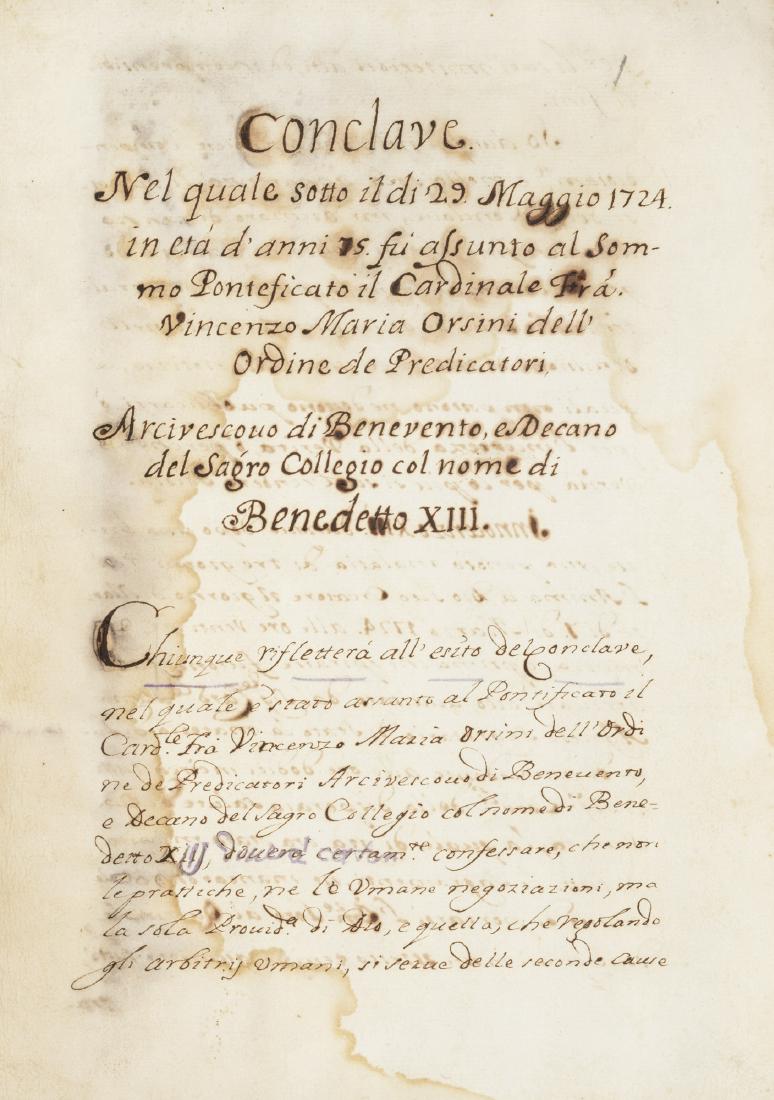 1
Conclave.
Nel quale sotto il di 29. Maggio 1724.
in etá d'anni 75. fú assunto al Som-
mo Ponteficato il Cardinale Frá.
Vincenzo Maria Orsini dell'
Ordine de Predicatori,
Arcivescovo di Benevento, e Decano
del Sagro Collegio col nome di
Benedetto XIII.
Chiunque rifletterá all'esito del Conclave,
nel quale è stato assunto al Pontificato il
Card.le Frà Vincenzo Maria Orsini dell'Ordi
ne de Predicatori Arcivescovo di Benevento,
e Decano del Sagro Collegio col nome di Bene-
detto XIIJ, doverà certam.te confessare, che non
le pratiche, ne le Umane negoziazioni, ma
la sola Provid.a di Dio, e quella, che regolando
gli arbitrij Umani, si serve delle seconde Cause